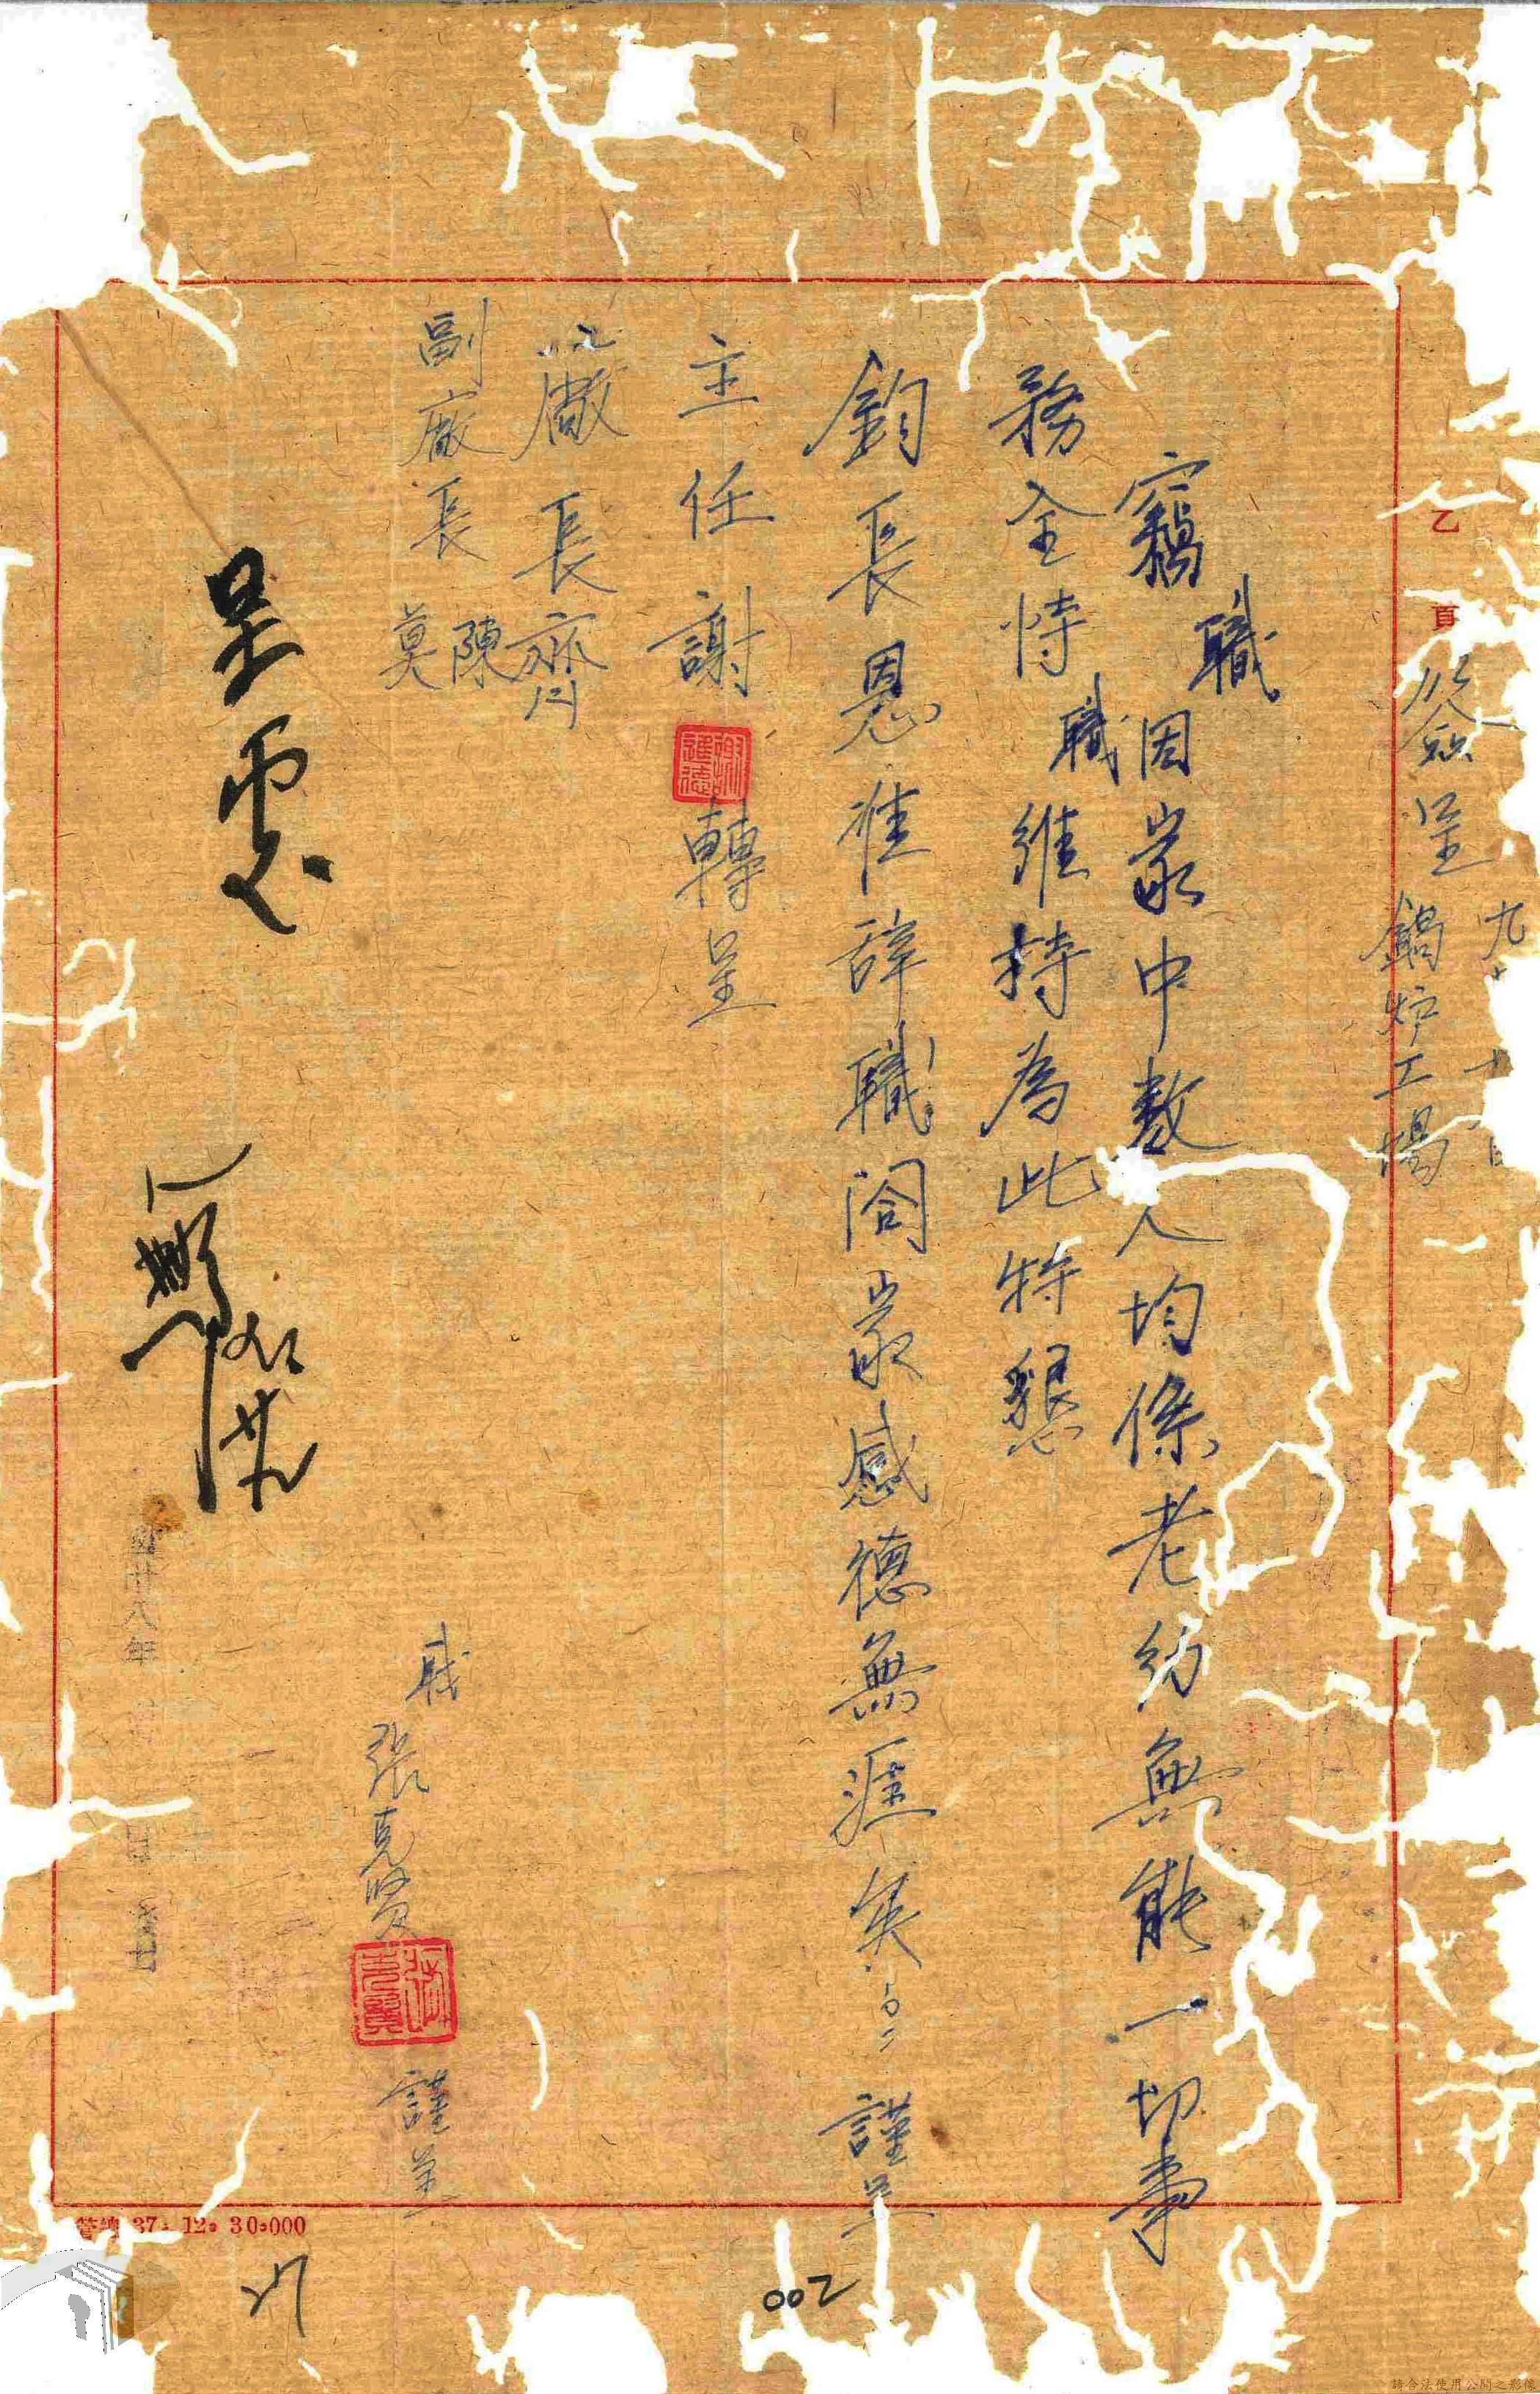 九
簽呈
鍋炉工場
乙
頁
竊職因家中數人均係老幼無能一切事
務全恃職維持為此特懇
鈞長恩准辞職闔家感德無涯矣 謹呈
主任謝 轉呈
廠長齊
副廠長陳
莫
職張克贤 謹呈
呈閱
廿九
十八年
日
37. 12. 30.000
002
請合法使用公開之影像